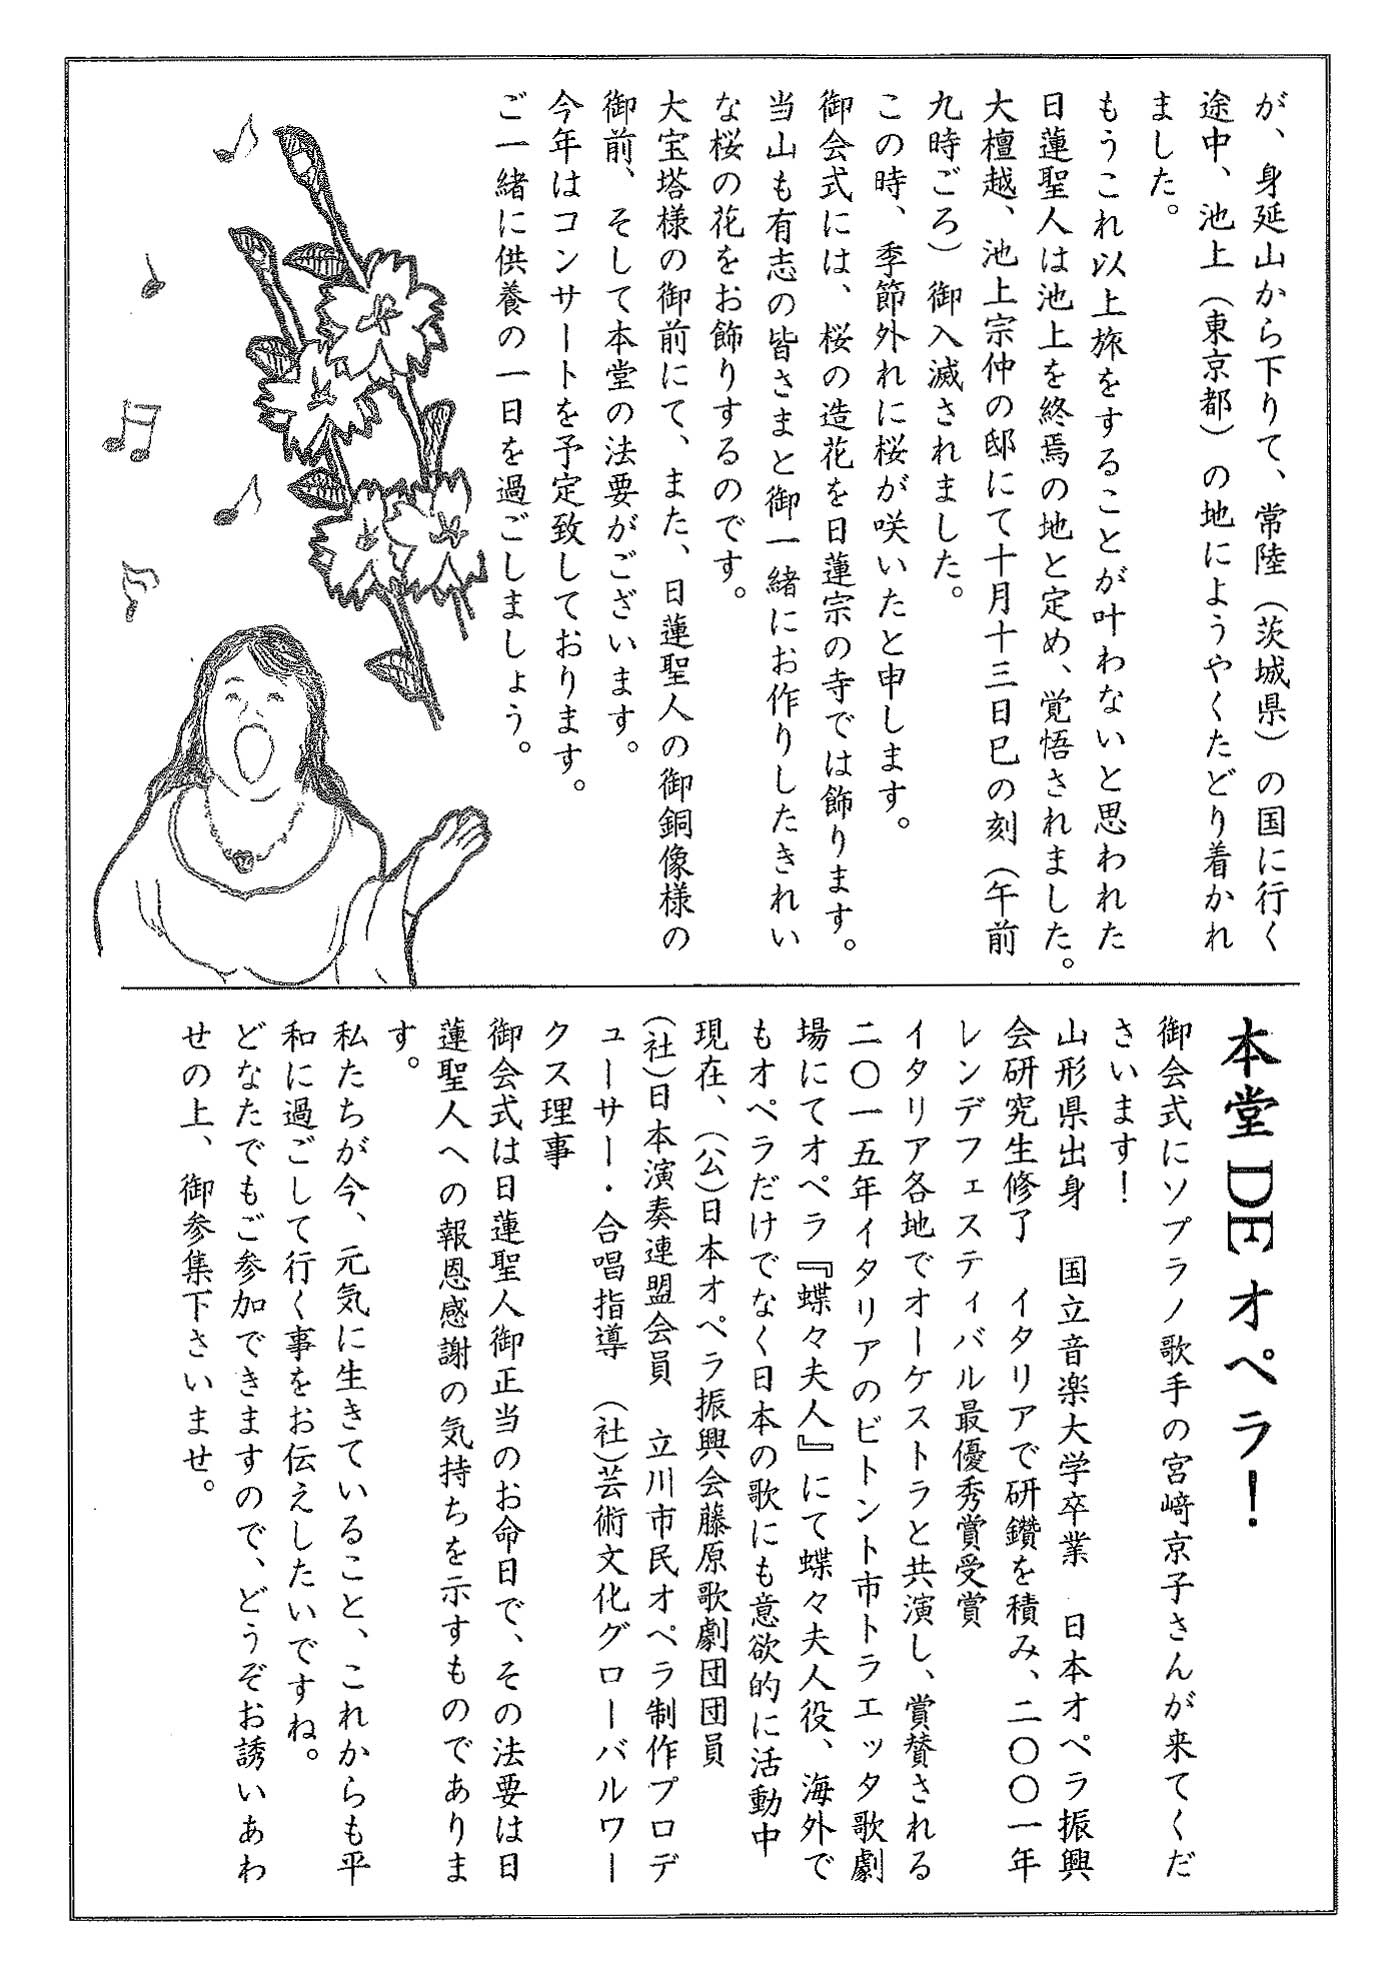 が、身延山から下りて、常陸（茨城県）の国に行く
途中、池上（東京都）の地にようやくたどり着かれ
ました。
もうこれ以上旅をすることが叶わないと思われた
日蓮聖人は池上を終焉の地と定め、覚悟されました。
大檀越、池上宗仲の邸にて十月十三日巳の刻（午前
九時ごろ）御入滅されました。
この時、季節外れに桜が咲いたと申します。
御会式には、桜の造花を日蓮宗の寺では飾ります。
当山も有志の皆さまと御一緒にお作りしたきれい
な桜の花をお飾りするのです。
大宝塔様の御前にて、また、日蓮聖人の御銅像様の
御前、そして本堂の法要がございます。
今年はコンサートを予定致しております。
ご一緒に供養の一日を過ごしましょう。
本堂DEオペラ！
御会式にソプラノ歌手の宮﨑京子さんが来てくだ
さいます！
山形県出身　国立音楽大学卒業　日本オペラ振興
会研究生修了　イタリアで研鑽を積み、二〇〇一年
レンデフェスティバル最優秀賞受賞
イタリア各地でオーケストラと共演し、賞賛される
二〇一五年イタリアのビトント市トラエッタ歌劇
場にてオペラ『蝶々夫人』にて蝶々夫人役、海外で
もオペラだけでなく日本の歌にも意欲的に活動中
現在、（公）日本オペラ振興会藤原歌劇団団員
（社）日本演奏連盟会員　立川市民オペラ制作プロデ
ューサー・合唱指導　（社）芸術文化グローバルワー
クス理事
御会式は日蓮聖人御正当のお命日で、その法要は日
蓮聖人への報恩感謝の気持ちを示すものでありま
す。
私たちが今、元気に生きていること、これからも平
和に過ごして行く事をお伝えしたいですね。
どなたでもご参加できますので、どうぞお誘いあわ
せの上、御参集下さいませ。